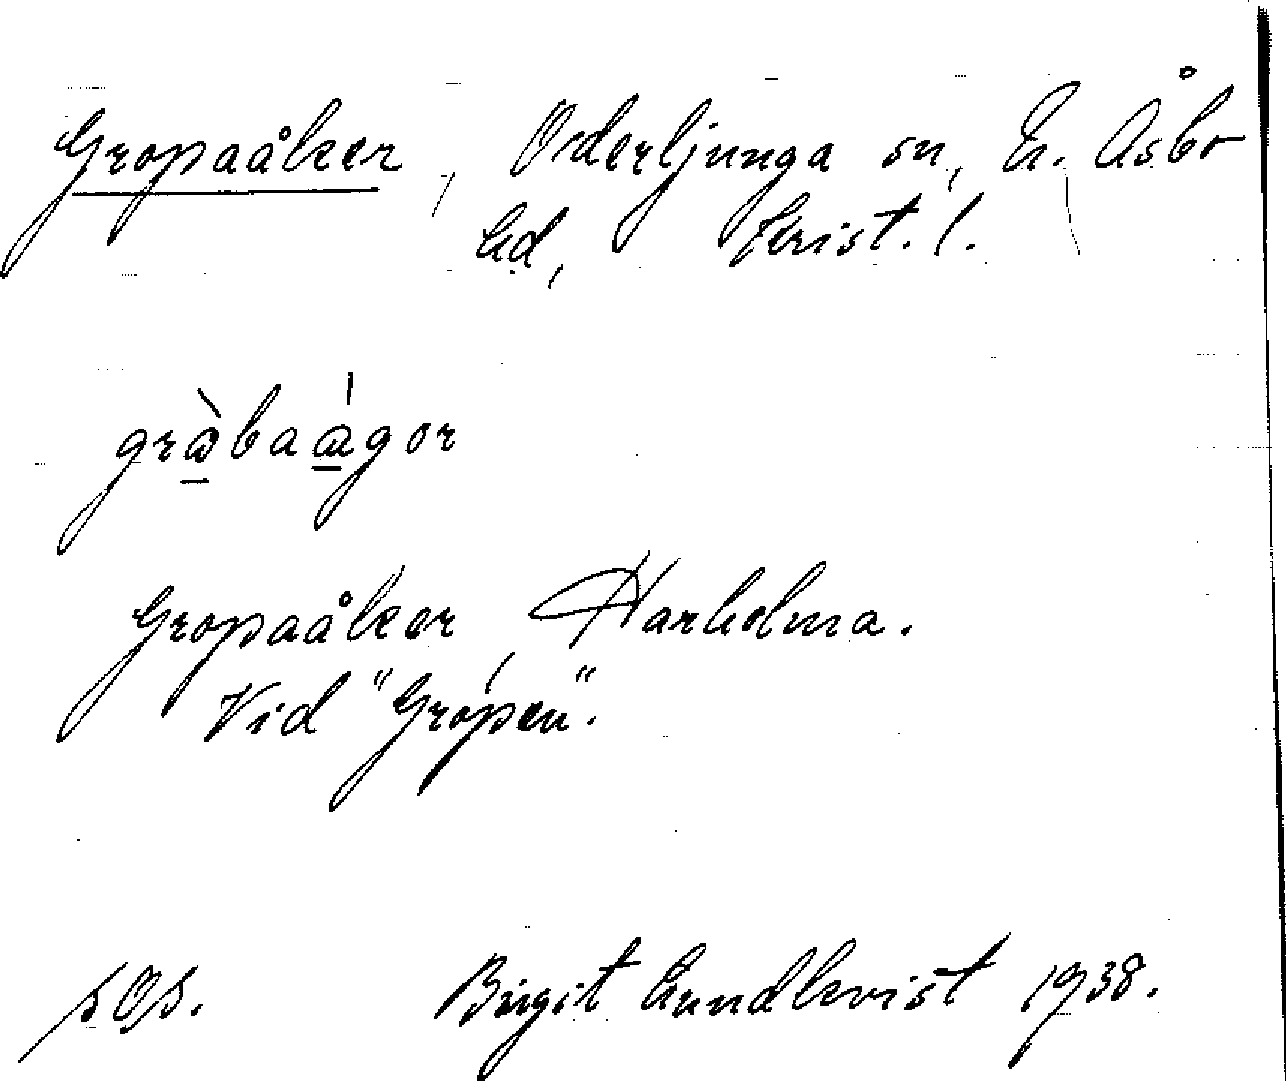 Gropaåker, Oderljunga sn, N. Åsbo
hd, Krist. l.
gràbaágor
Gropaåker, Harholma.
Vid "Gropen".
sOs. Birgit Lundkvist 1938.